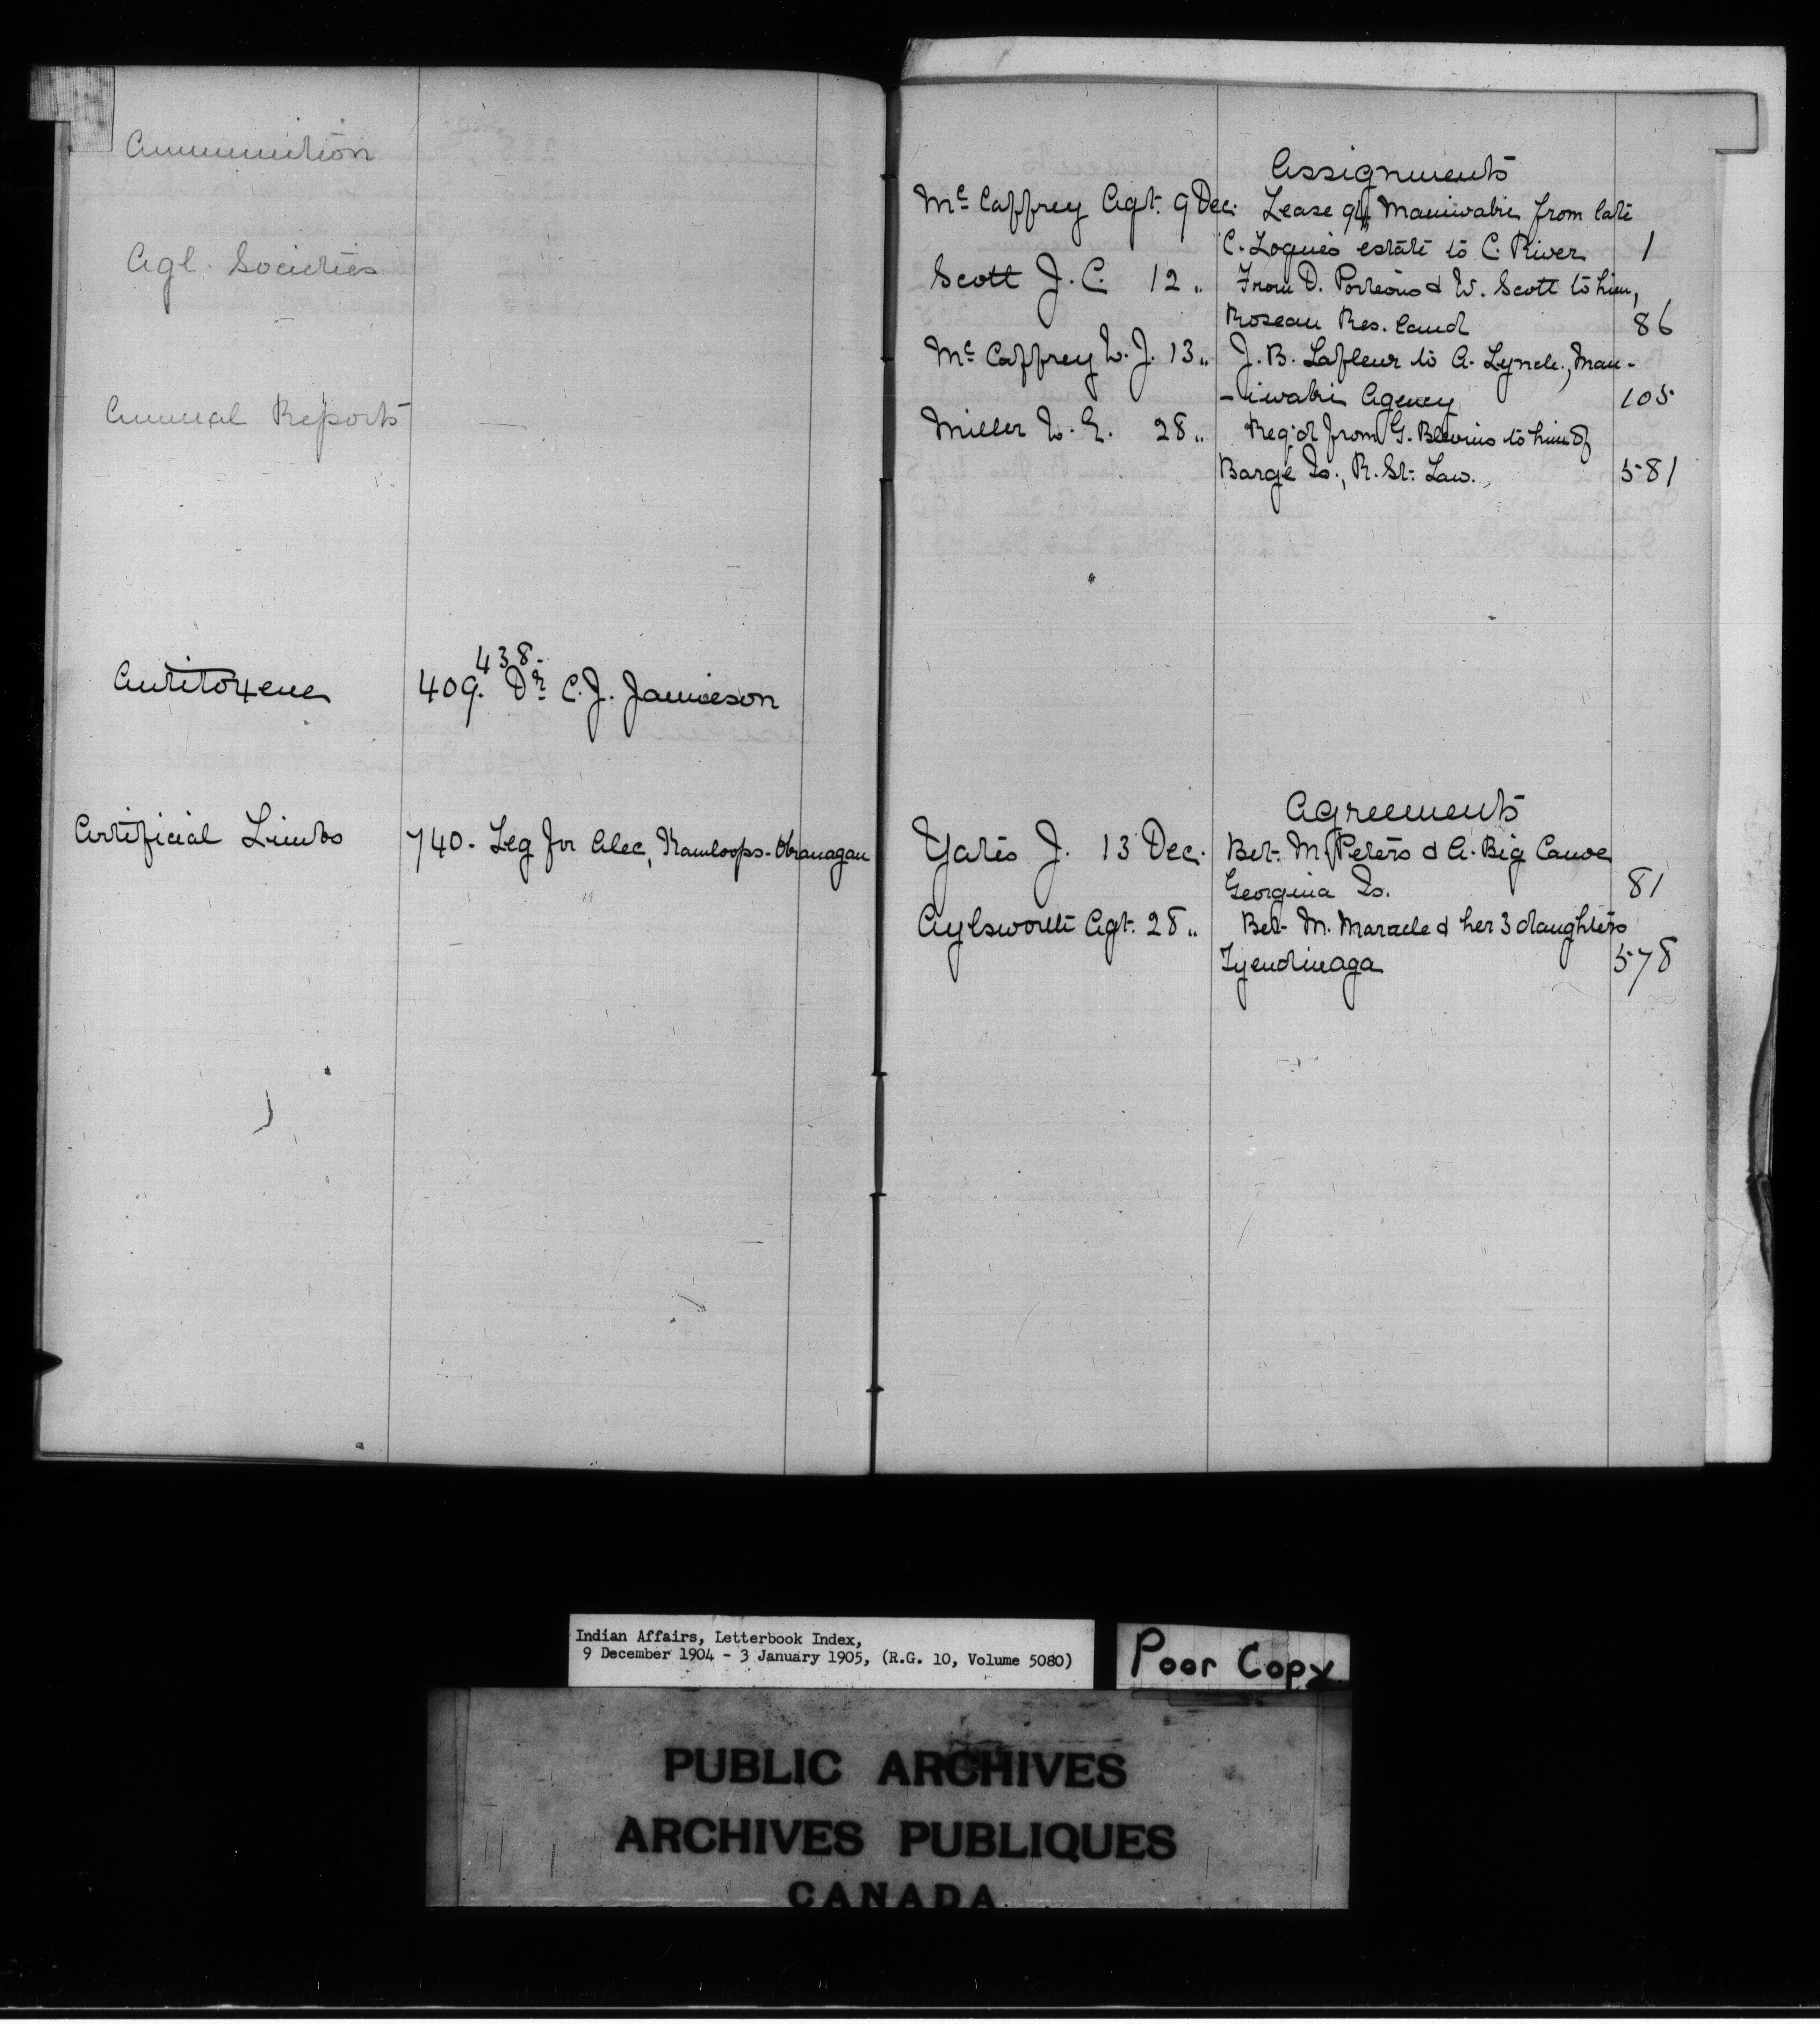 Ammunition
Agl. Societies
Annual Reports
438.
Antitoxene 409. Dr. C. J. Jamieson
Artificial Limbs 740. Leg for Alec, Kamloops-Okanagan
Assignments
Mc Caffrey Agt. 9 Dec. Lease Maniwaki from late
C. Logue's estate to C. River 1
Scott J. C. 12 " From D. Porteous & W. Scott to him,
Roseau Res. land 86
Mc Caffrey W. J. 13 " J. B. Lafleur to A. Lynch, Man-
-iwaki Agency 105
Miller W. E. 28 " Req'd from G. Blevins to him of
Barge Is., R. St. Law. 581
Agreements
Yates J. 13 Dec. Bet. M. Peters & A. Big Canoe
Georgina Is. 81
Aylsworth Agt. 28 " Bet. M. Maracle & her 3 daughters
Tyendinaga 578
Indian Affairs, Letterbook Index,
9 December 1904 - 3 January 1905, (R.G. 10, Volume 5080)
Poor Copy
PUBLIC ARCHIVES
ARCHIVES PUBLIQUES
CANADA